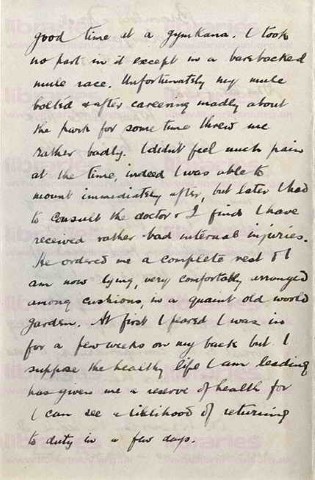 good time at a gymkana. I took
no part in it except in a barebacked
mule race. Unfortunately my mule
bolted & after careering madly about
the park for some time threw me
rather badly. I didn't feel much pain
at the time, indeed I was able to
mount immediately after, but later I had
to consult the doctor & I find I have
received rather bad internal injuries.
He ordered me a complete rest & I
am now lying, very comfortably arranged
among cushions, in a quaint old world
garden. At first I feared I was in
for a few weeks on my back but I
suppose the healthy life I am leading
has given me a reserve of health for
I can see a likelihood of returning
to duty in a few days.